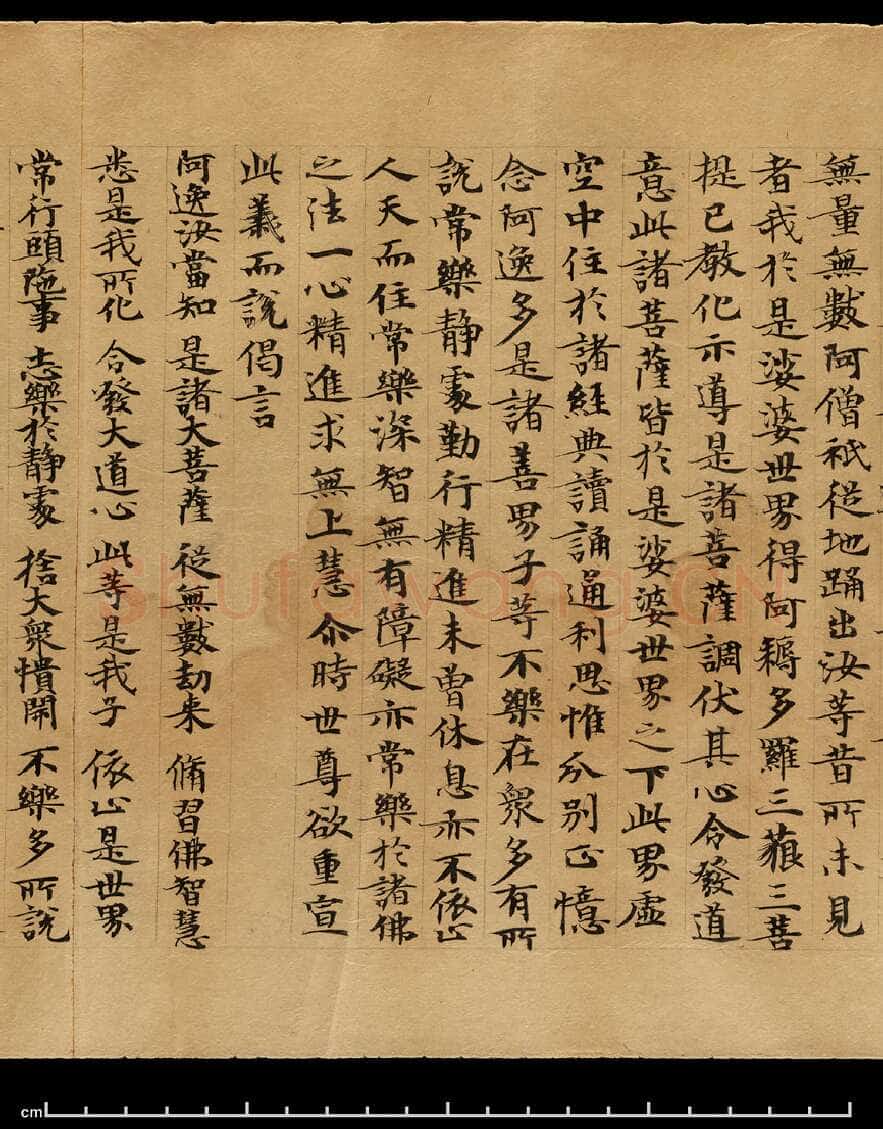 無量無數阿僧祇從地踊出汝等昔所未見
者我於是娑婆世界得阿耨多羅三藐三菩
提已教化示導是諸菩薩調伏其心令發道
意此諸菩薩皆於是娑婆世界之下此界虛
空中住於諸經典讀誦通利思惟分別正憶
念阿逸多是諸善男子等不樂在眾多有所
說常樂靜處勤行精進未曾休息亦不依止
人天而住常樂深智無有障礙亦常樂於諸佛
之法一心精進求無上慧尒時世尊欲重宣
此義而說偈言
阿逸汝當知 是諸大菩薩 從無數劫来 脩習佛智慧
悉是我所化 令發大道心 此等是我子 依止是世界
常行頭陁事 志樂於靜處 捨大衆憒閙 不樂多所說
shufawang.CN
cm